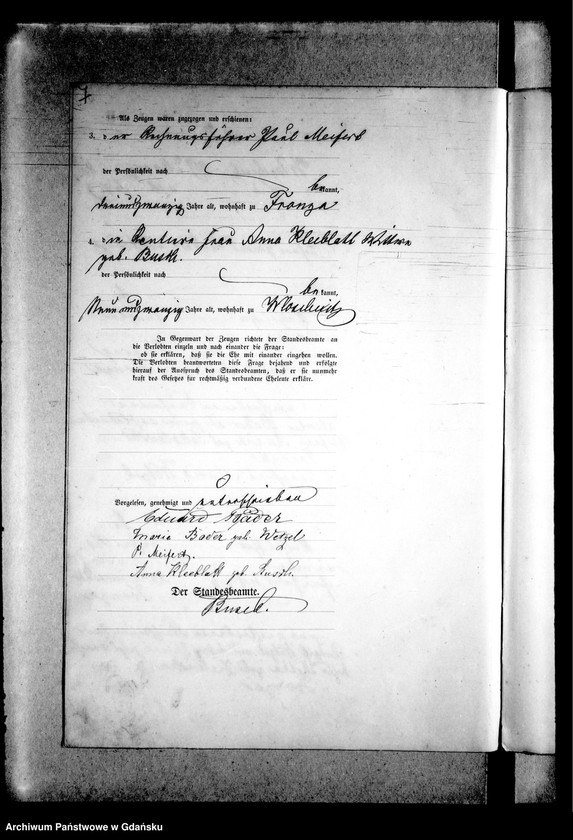 Als Zeugen waren zugezogen und erschienen:
3. der Rechnungsführer Paul Meifert
der Persönlichkeit nach
bekannt,
dreiundzwanzig Jahre alt, wohnhaft zu Franza
4. die Frau Anna Kleeblatt Wittwe
geb. Busch.
der Persönlichkeit nach
bekannt,
Neun undzwanzig Jahre alt, wohnhaft zu
In Gegenwart der Zeugen richtete der Standesbeamte an
die Verlobten einzeln und nach einander die Frage:
ob sie erklären, daß sie die Ehe mit einander eingehen wollen.
Die Verlobten beantworteten diese Frage bejahend und erfolgte
hierauf der Ausspruch des Standesbeamten, daß er sie nunmehr
kraft des Gesetzes für rechtmäßig verbundene Eheleute erkläre.
Vorgelesen, genehmigt und unterschrieben
Eduard Bader
Maria Bader geb. Wetzel
P. Meifert.
Anna Kleeblatt geb. Busch.
Der Standesbeamte.
Archiwum Państwowe w Gdańsku